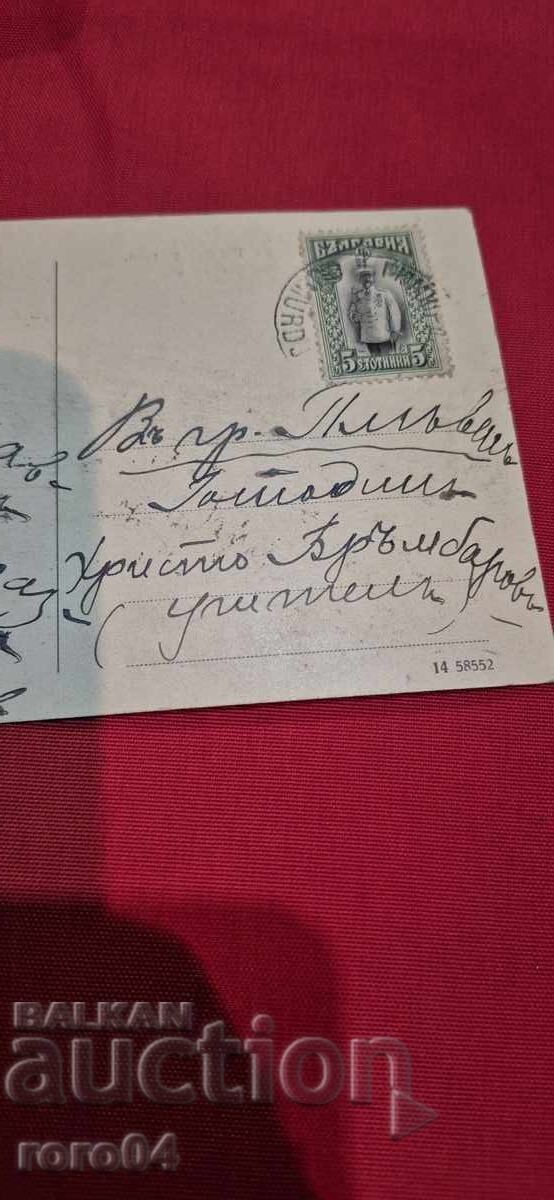 БЪЛГАРИЯ
5 СТОТИНКИ 5
Въ гр. Плѣвенъ
Господинъ
Христо Бръмбаровъ
(учитель)
14 58552
BALKAN
auction
roro04